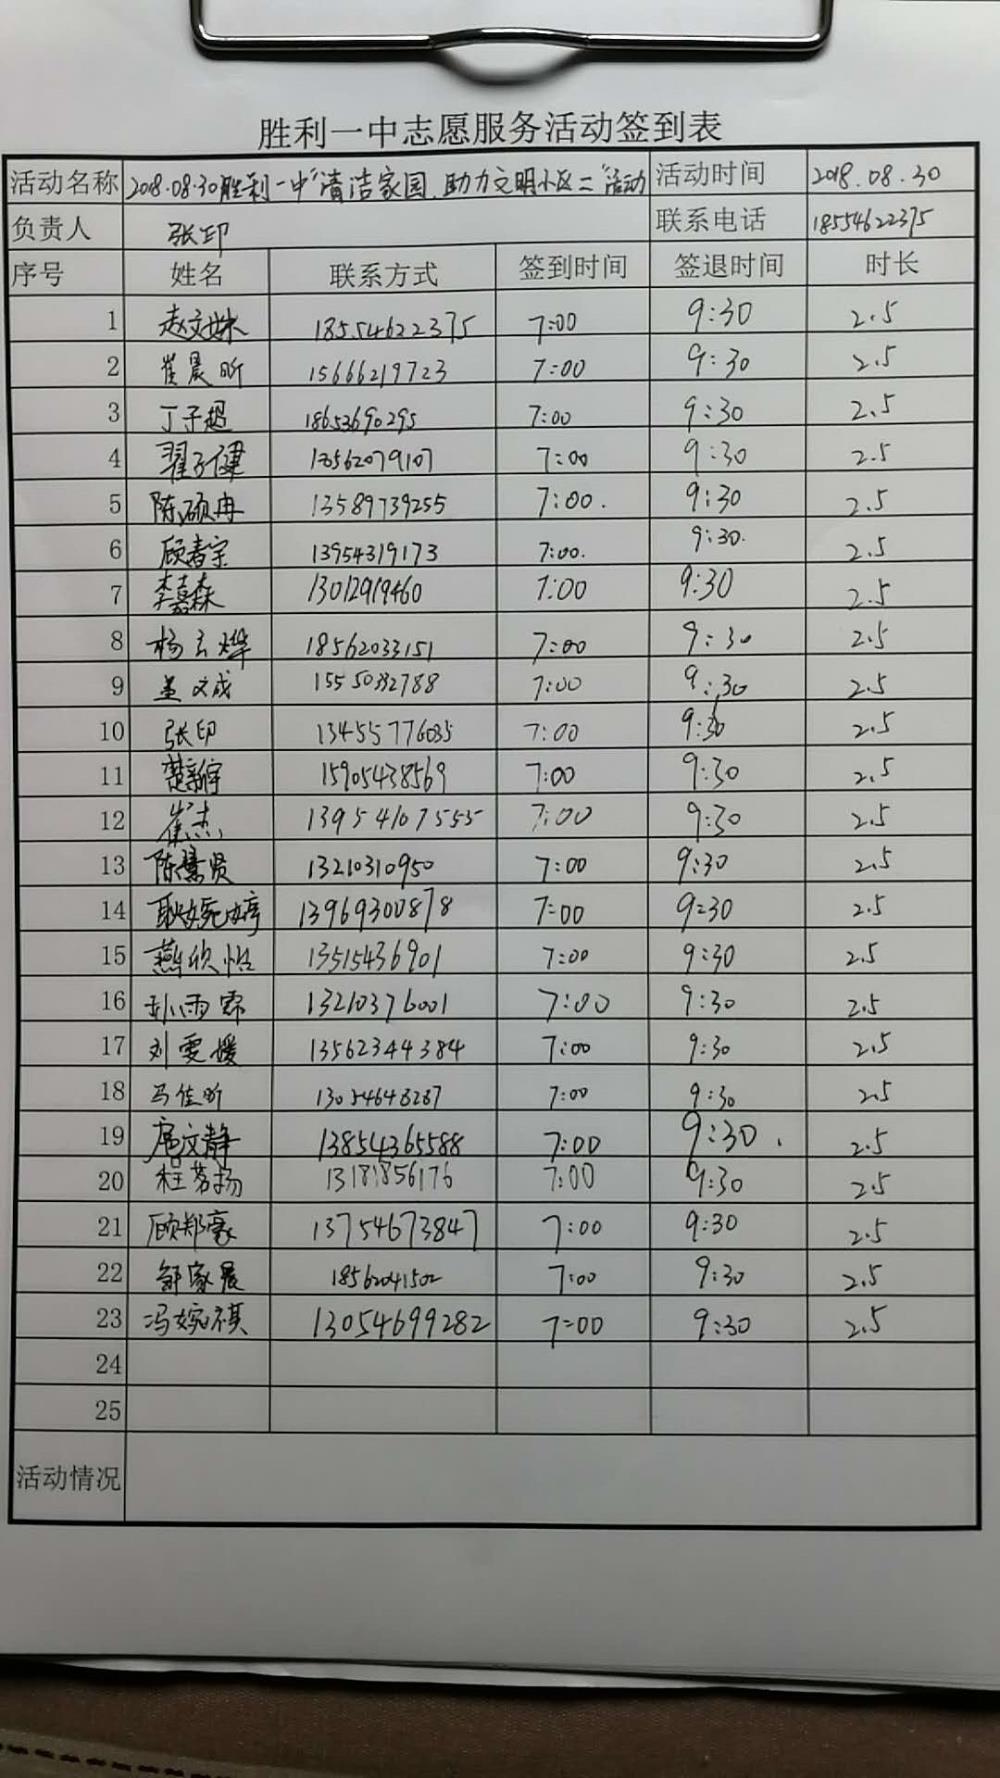 胜利一中志愿服务活动签到表
活动名称 2018.08.30胜利一中"清洁家园、助力文明小区二"活动 活动时间 2018.08.30
负责人 张印 联系电话 18554622375
序号 姓名 联系方式 签到时间 签退时间 时长
1 赵文姝 18554622375 7:00 9:30 2.5
2 崔晨昕 15666219723 7:00 9:30 2.5
3 丁子超 18653690295 7:00 9:30 2.5
4 翟子健 13562079107 7:00 9:30 2.5
5 陈硕冉 13589739255 7:00. 9:30 2.5
6 顾春宗 13954319173 7:00. 9:30. 2.5
7 李嘉森 13012919460 7:00 9:30 2.5
8 杨云烨 18562033151 7:00 9:30 2.5
9 盖文成 7:00 9:30 2.5
10 张印 13455776035 7:00 9:30 2.5
11 楚新宇 15905438569 7:00 9:30 2.5
12 崔杰 13954107555 7:00 9:30 2.5
13 陈慧贤 13210310950 7:00 9:30 2.5
14 耿婉婷 13969300878 7:00 9:30 2.5
15 燕欣怡 13515436901 7:00 9:30 2.5
16 孙雨霏 13210376001 7:00 9:30 2.5
17 刘雯媛 13562344384 7:00 9:30 2.5
18 马佳昕 13054648287 7:00 9:30 2.5
19 扈文静 13854365588 7:00 9:30. 2.5
20 程茗扬 13181856176 7:00 9:30 2.5
21 顾郑豪 13754673847 7:00 9:30 2.5
22 舒家晨 18562041502 7:00 9:30 2.5
23 冯婉祺 13054699282 7:00 9:30 2.5
24
25
活动情况